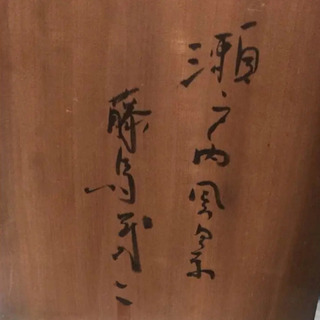 瀬戸内風景
藤島茂二